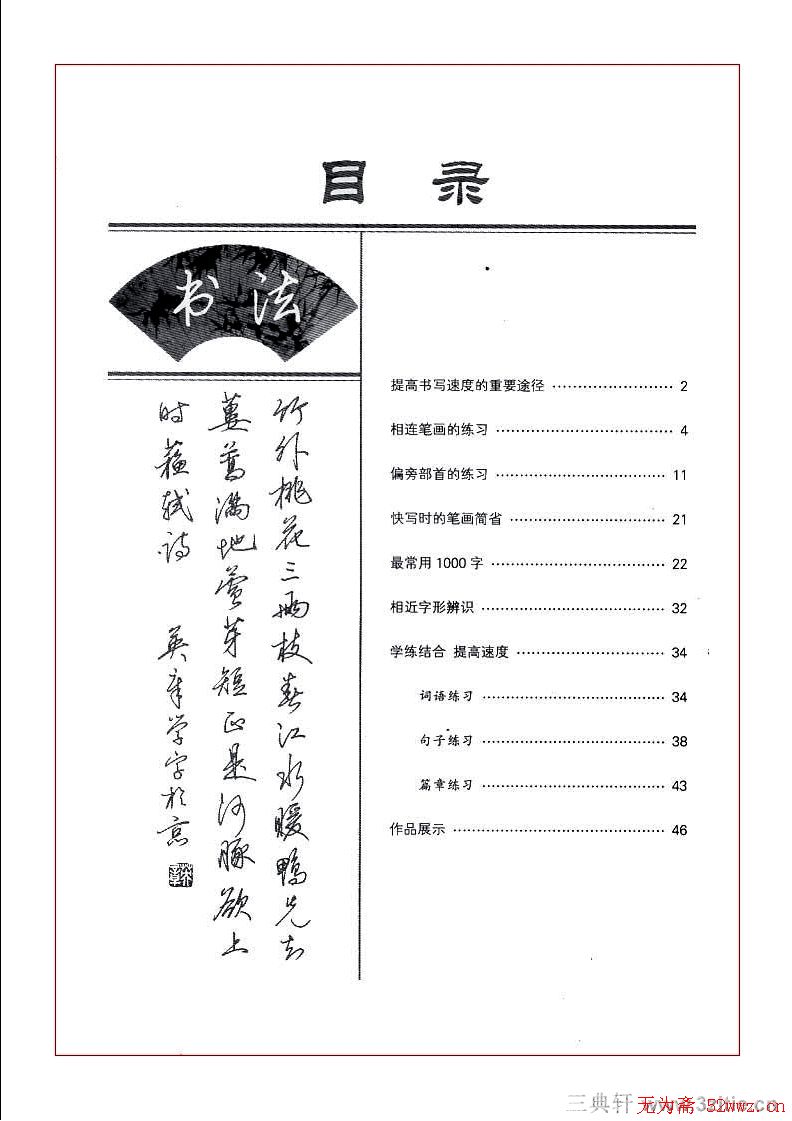 目 录
书法
竹外桃花三两枝春江水暖鸭先知
蒌蒿满地芦芽短正是河豚欲上
时苏轼诗 英章学字於京
提高书写速度的重要途径 …………………… 2
相连笔画的练习 …………………… 4
偏旁部首的练习 …………………… 11
快写时的笔画简省 …………………… 21
最常用1000字 …………………… 22
相近字形辨识 …………………… 32
学练结合 提高速度 …………………… 34
词语练习 …………………… 34
句子练习 …………………… 38
篇章练习 …………………… 43
作品展示 …………………… 46
三典轩
无为斋 52wwz.cn